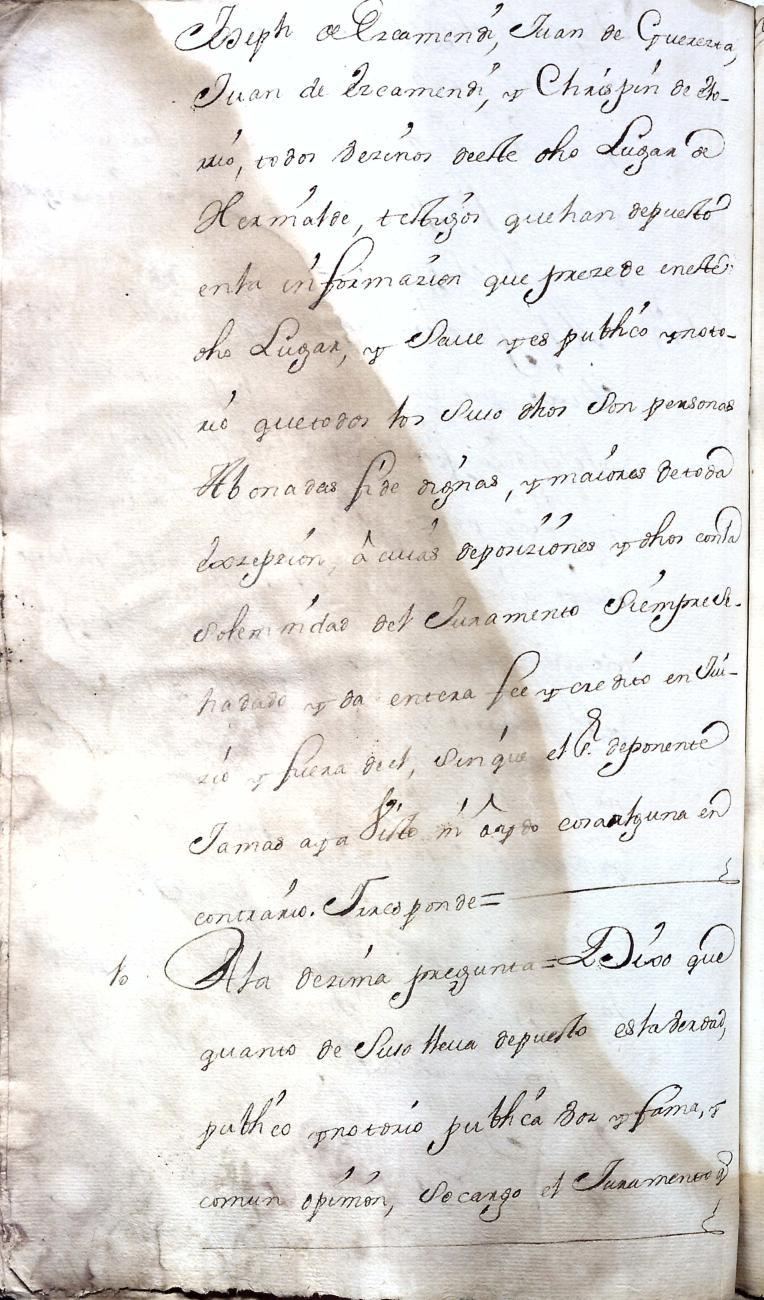 Joseph de Ercamendi, Juan de Guerezta,
Juan de Ercamendi, y Chrispin de Eto-
rrio, todos Vezinos deeste dho Lugar de
Hermalde, testigos que han depuesto
enla informazion que prezede eneste
dho Lugar, y Saue y es publico y noto-
rio que todos los Suso dhos Son personas
Abonadas fide dignas, y maiores de toda
Exzepzion, â cuias deposiziones y dhos con la
Solemnidad del Juramento Siempre Se
ha dado y da entera fee y credito en Jui-
zio y fuera de el, sin que el P. deponente
Jamas aya Visto ni oydo cosa alguna en
contrario. Y responde =
10 A la dezima pregunta = Dixo que
quanto de Suso lleua depuesto es la Verdad,
publico y notorio publica Voz y fama, y
comun opinion, So cargo el Juramento q